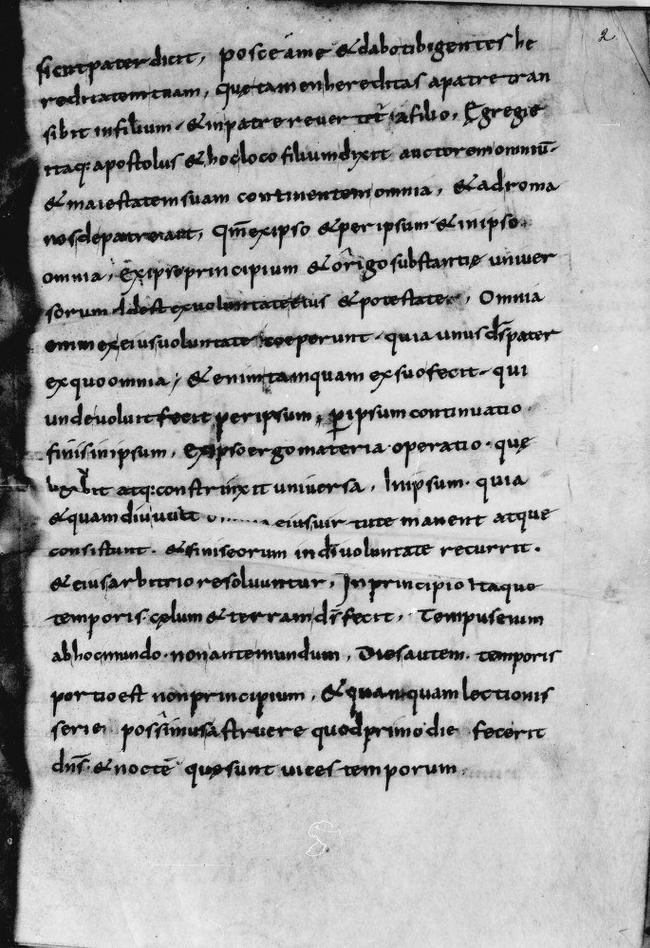 2
sicut pater dicit, posce a me & dabo tibi gentes he
reditatem tuam, Quę tamen hereditas a patre tran
sibit in filium & in patre reuertet̄ a filio, Egregie
itaq: apostolus & hoc loco filium dixit auctorem omniū
& maiestatem suam continentem omnia, & ad roma
nos de patre ait, Qm̄ ex ipso & per ipsum & in ipso
omnia, Ex ipso principium & origo substantię uniuer
sorum id est ex uoluntate eius & potestate, Omnia
enim ex eius uoluntate coeperunt quia unus ds̄ pater
ex quo omnia, & enim tamquam ex suo fecit qui
unde uoluit fecit per ipsum, ꝑ ipsum continuatio
finis in ipsum, Ex ipso ergo materia operatio quę
bit atq: constrinxit uniuersa, In ipsum quia
& quamdiu uult omnia eius uirtute manent atque
consistunt & finis eorum in dī uoluntate recurrit.
& eius arbitrio resoluuntur, In principio Itaque
temporis cęlum & terram ds̄ fecit, Tempus enim
ab hoc mundo non ante mundum, Dies autem temporis
portio est non principium, & quamquam lectionis
serie possimus astruere quod primo die fecerit
dns̄ & noctē quę sunt uices temporum